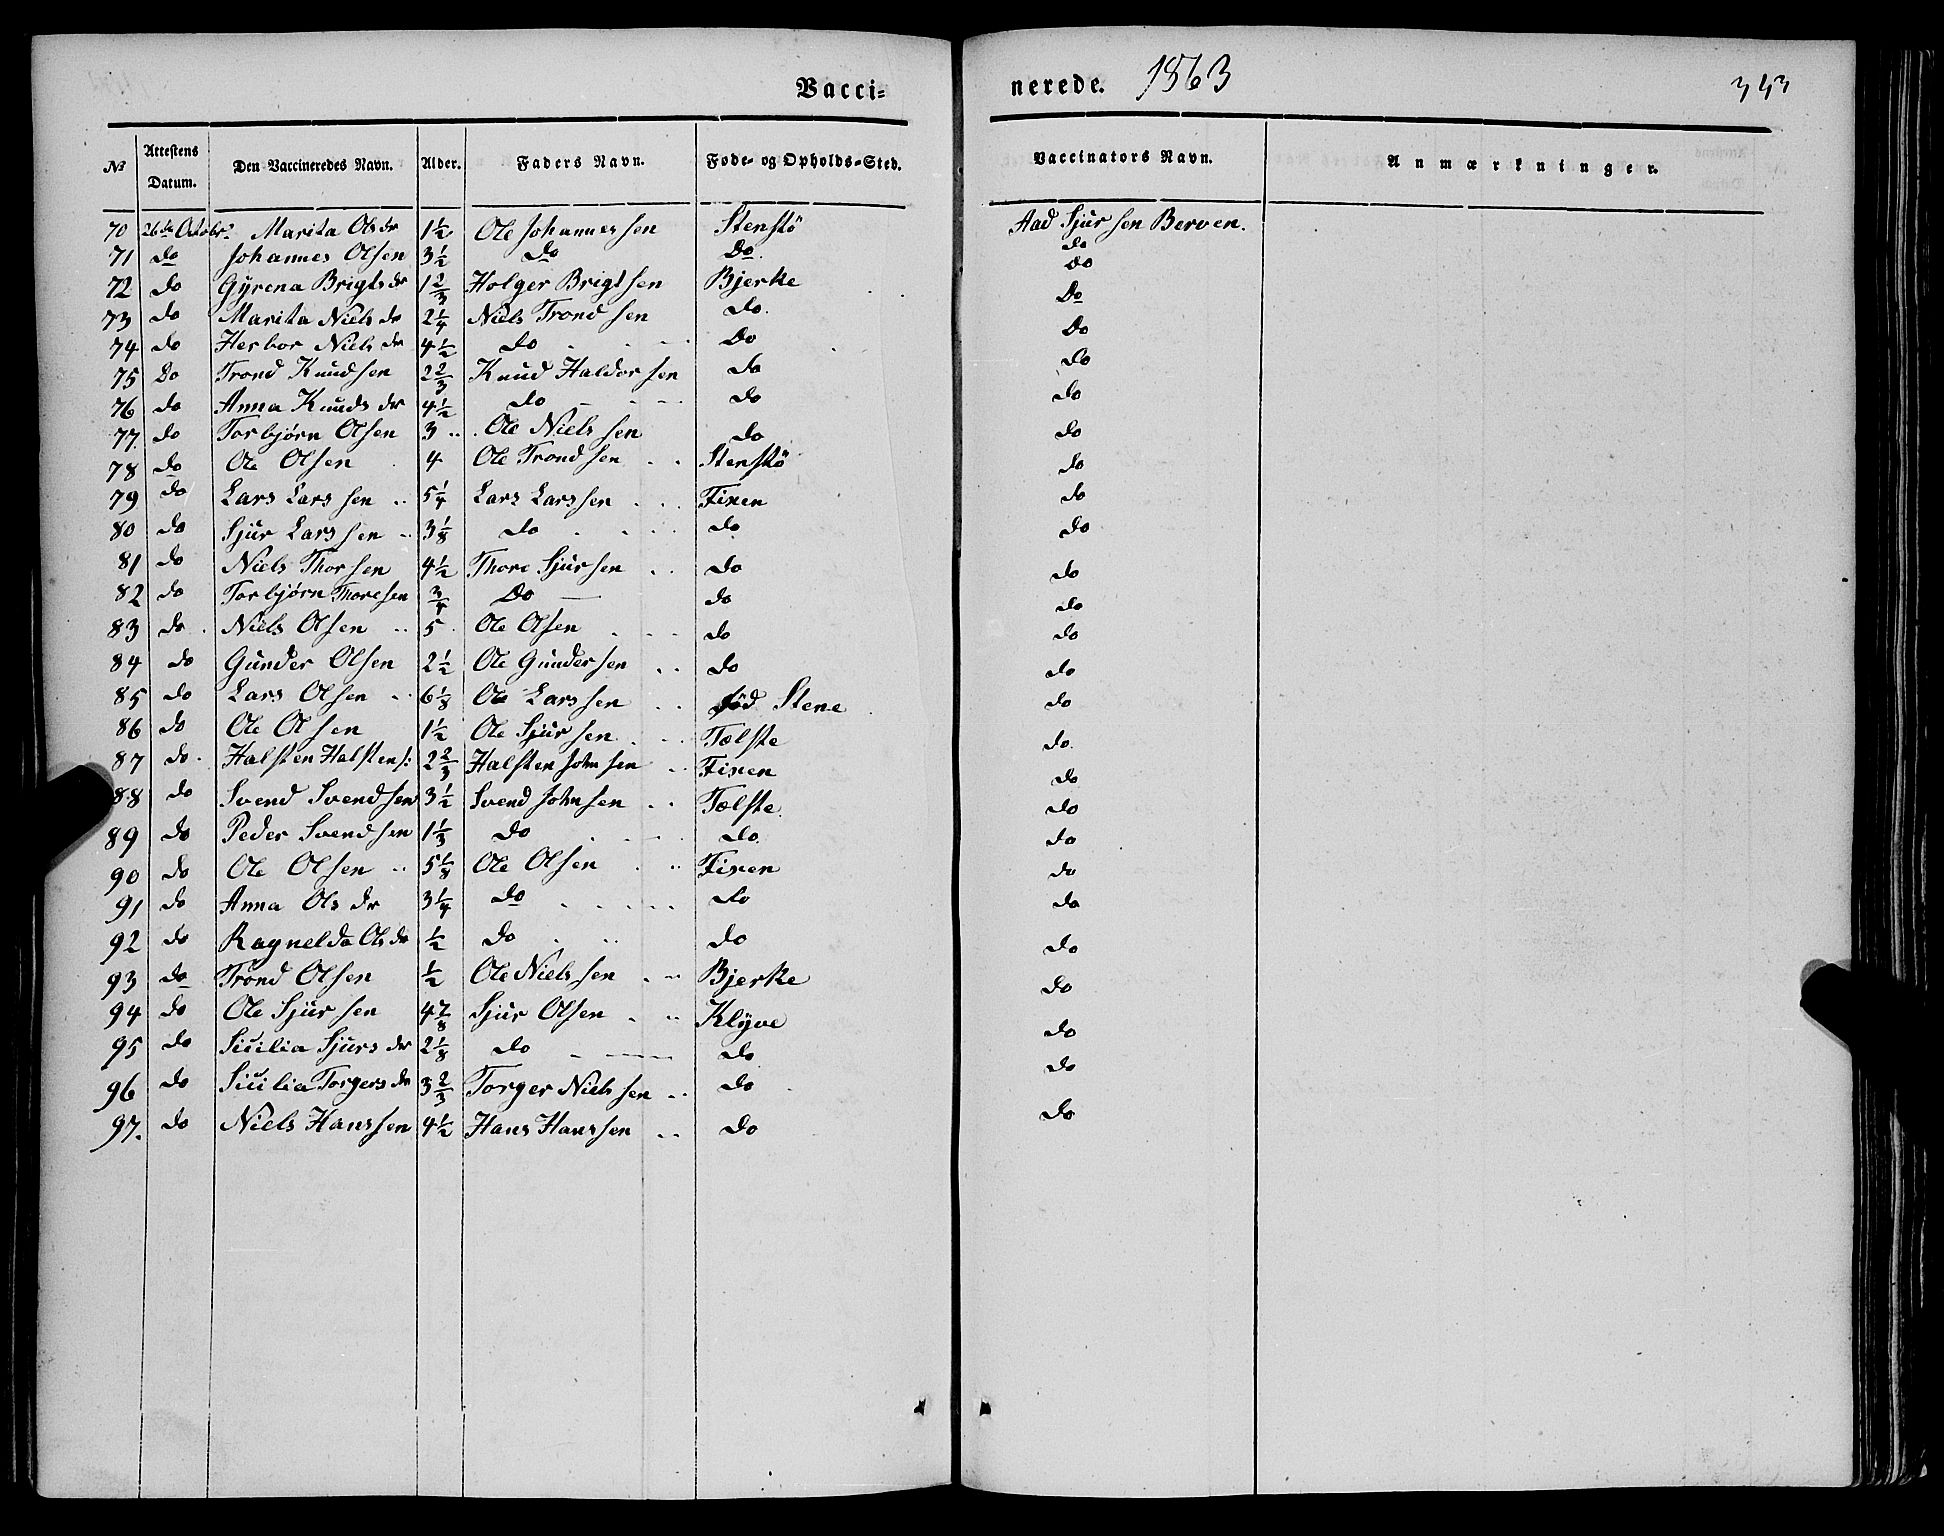 Vacci= nerede. 1863 343
No Attestens Datum. Den Vaccineredes Navn. Alder. Faders Navn. Føde- og Opholds-Sted. Vaccinators Navn. Anmærkninger.
70 26de Octobr. Marita Olsdr 1½ Ole Johannessen Stenstö Aad Sjursen Berven.
71 do Johannes Olsen 3½ do Do. do
72 do Gyrena Brigtsdr 1⅔ Holger Brigtsen Bjerke Do
73 do Marita Nielsdr 2¼ Niels Trondsen do. Do
74 do Herbor Nielsdr 4½ do Do Do
75 Do Trond Knudsen 2⅔ Knud Haldorsen do do
76 do Anna Knudsdr 4½ do do do
77. do Torbjørn Olsen 3 Ole Nielssen do do
78 do Ole Olsen 4 Ole Trondsen Stenstö do
79 do Lars Larssen 5¼ Lars Larssen Fixen do
80 do Sjur Larssen 3⅛ do do do
81 do Niels Thorsen 4½ Thore Sjursen do do
82 do Torbjørn Thoresen ¾ Do do do
83 do Niels Olsen 5 Ole Olsen do do
84 do Gunder Olsen 2½ Ole Gundersen do do
85 do Lars Olsen 6⅛ Ole Larssen fød Stene do
86 do Ole Olsen 1½ Ole Sjursen Tælste do.
87 do Halsten Halstens: 2⅔ Halsten Johnsen Fixen do
88 do Svend Svendsen 3½ Svend Johnsen Tælste do
89 do Peder Svendsen 1⅓ do do. do
90 do Ole Olsen 5⅛ Ole Olsen Fixen do
91 do Anna Olsdr 3¼ do do do
92 do Ragnelda Olsdr ½ do do do
93 do Trond Olsen ½ Ole Nielssen Bjerke do
94 do Ole Sjursen 4⅞ Sjur Olsen Klyve do
95 do Sicilia Sjursdr 2⅛ do do do
96 do Sicilia Torgersdr 3⅔ Torger Nielssen do do
97. do Niels Hanssen 4½ Hans Hanssen do do